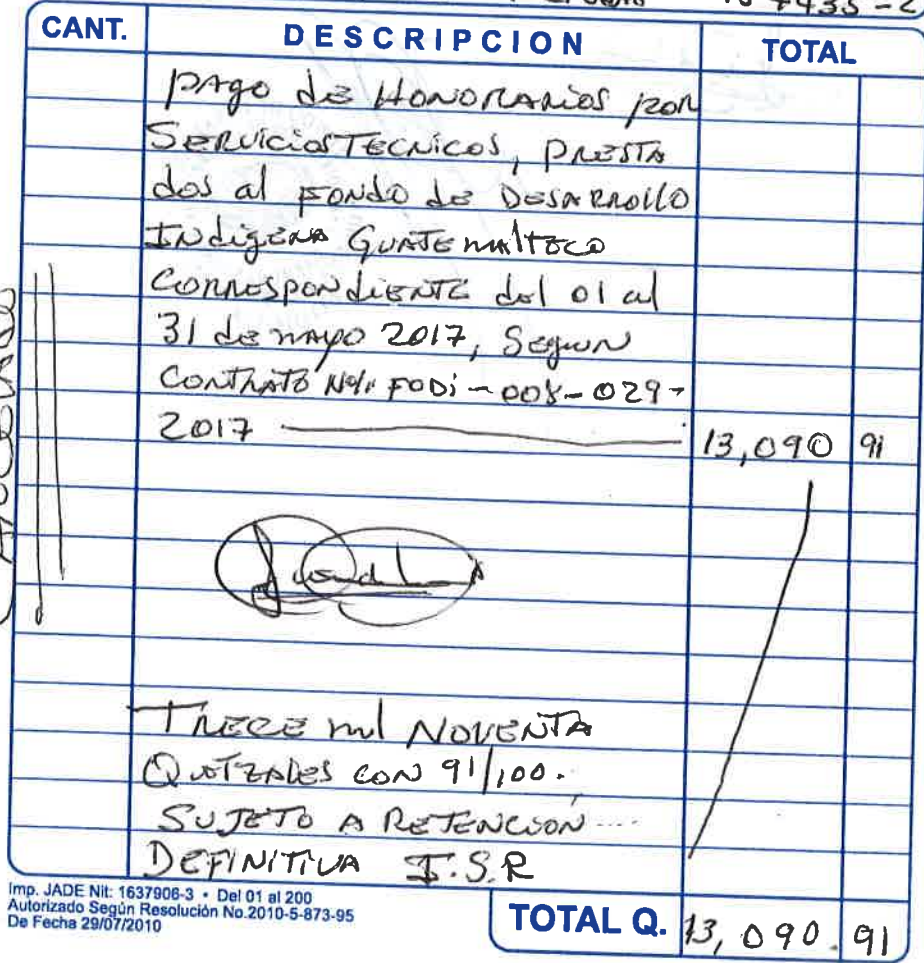 7435-2
CANT. DESCRIPCION TOTAL
Pago de Honorarios por
Servicios Tecnicos, presta
dos al Fondo de Desarrollo
Indigena Guatemalteco
Correspondiente del 01 al
31 de mayo 2017, Segun
Contrato No. FODI-008-029-
2017 13,090 91
Trece mil Noventa
Quetzales con 91/100.
Sujeto a Retencion
Definitiva I.S.R
Imp. JADE Nit: 1637906-3 • Del 01 al 200
Autorizado Según Resolución No.2010-5-873-95
De Fecha 29/07/2010
TOTAL Q. 13,090.91